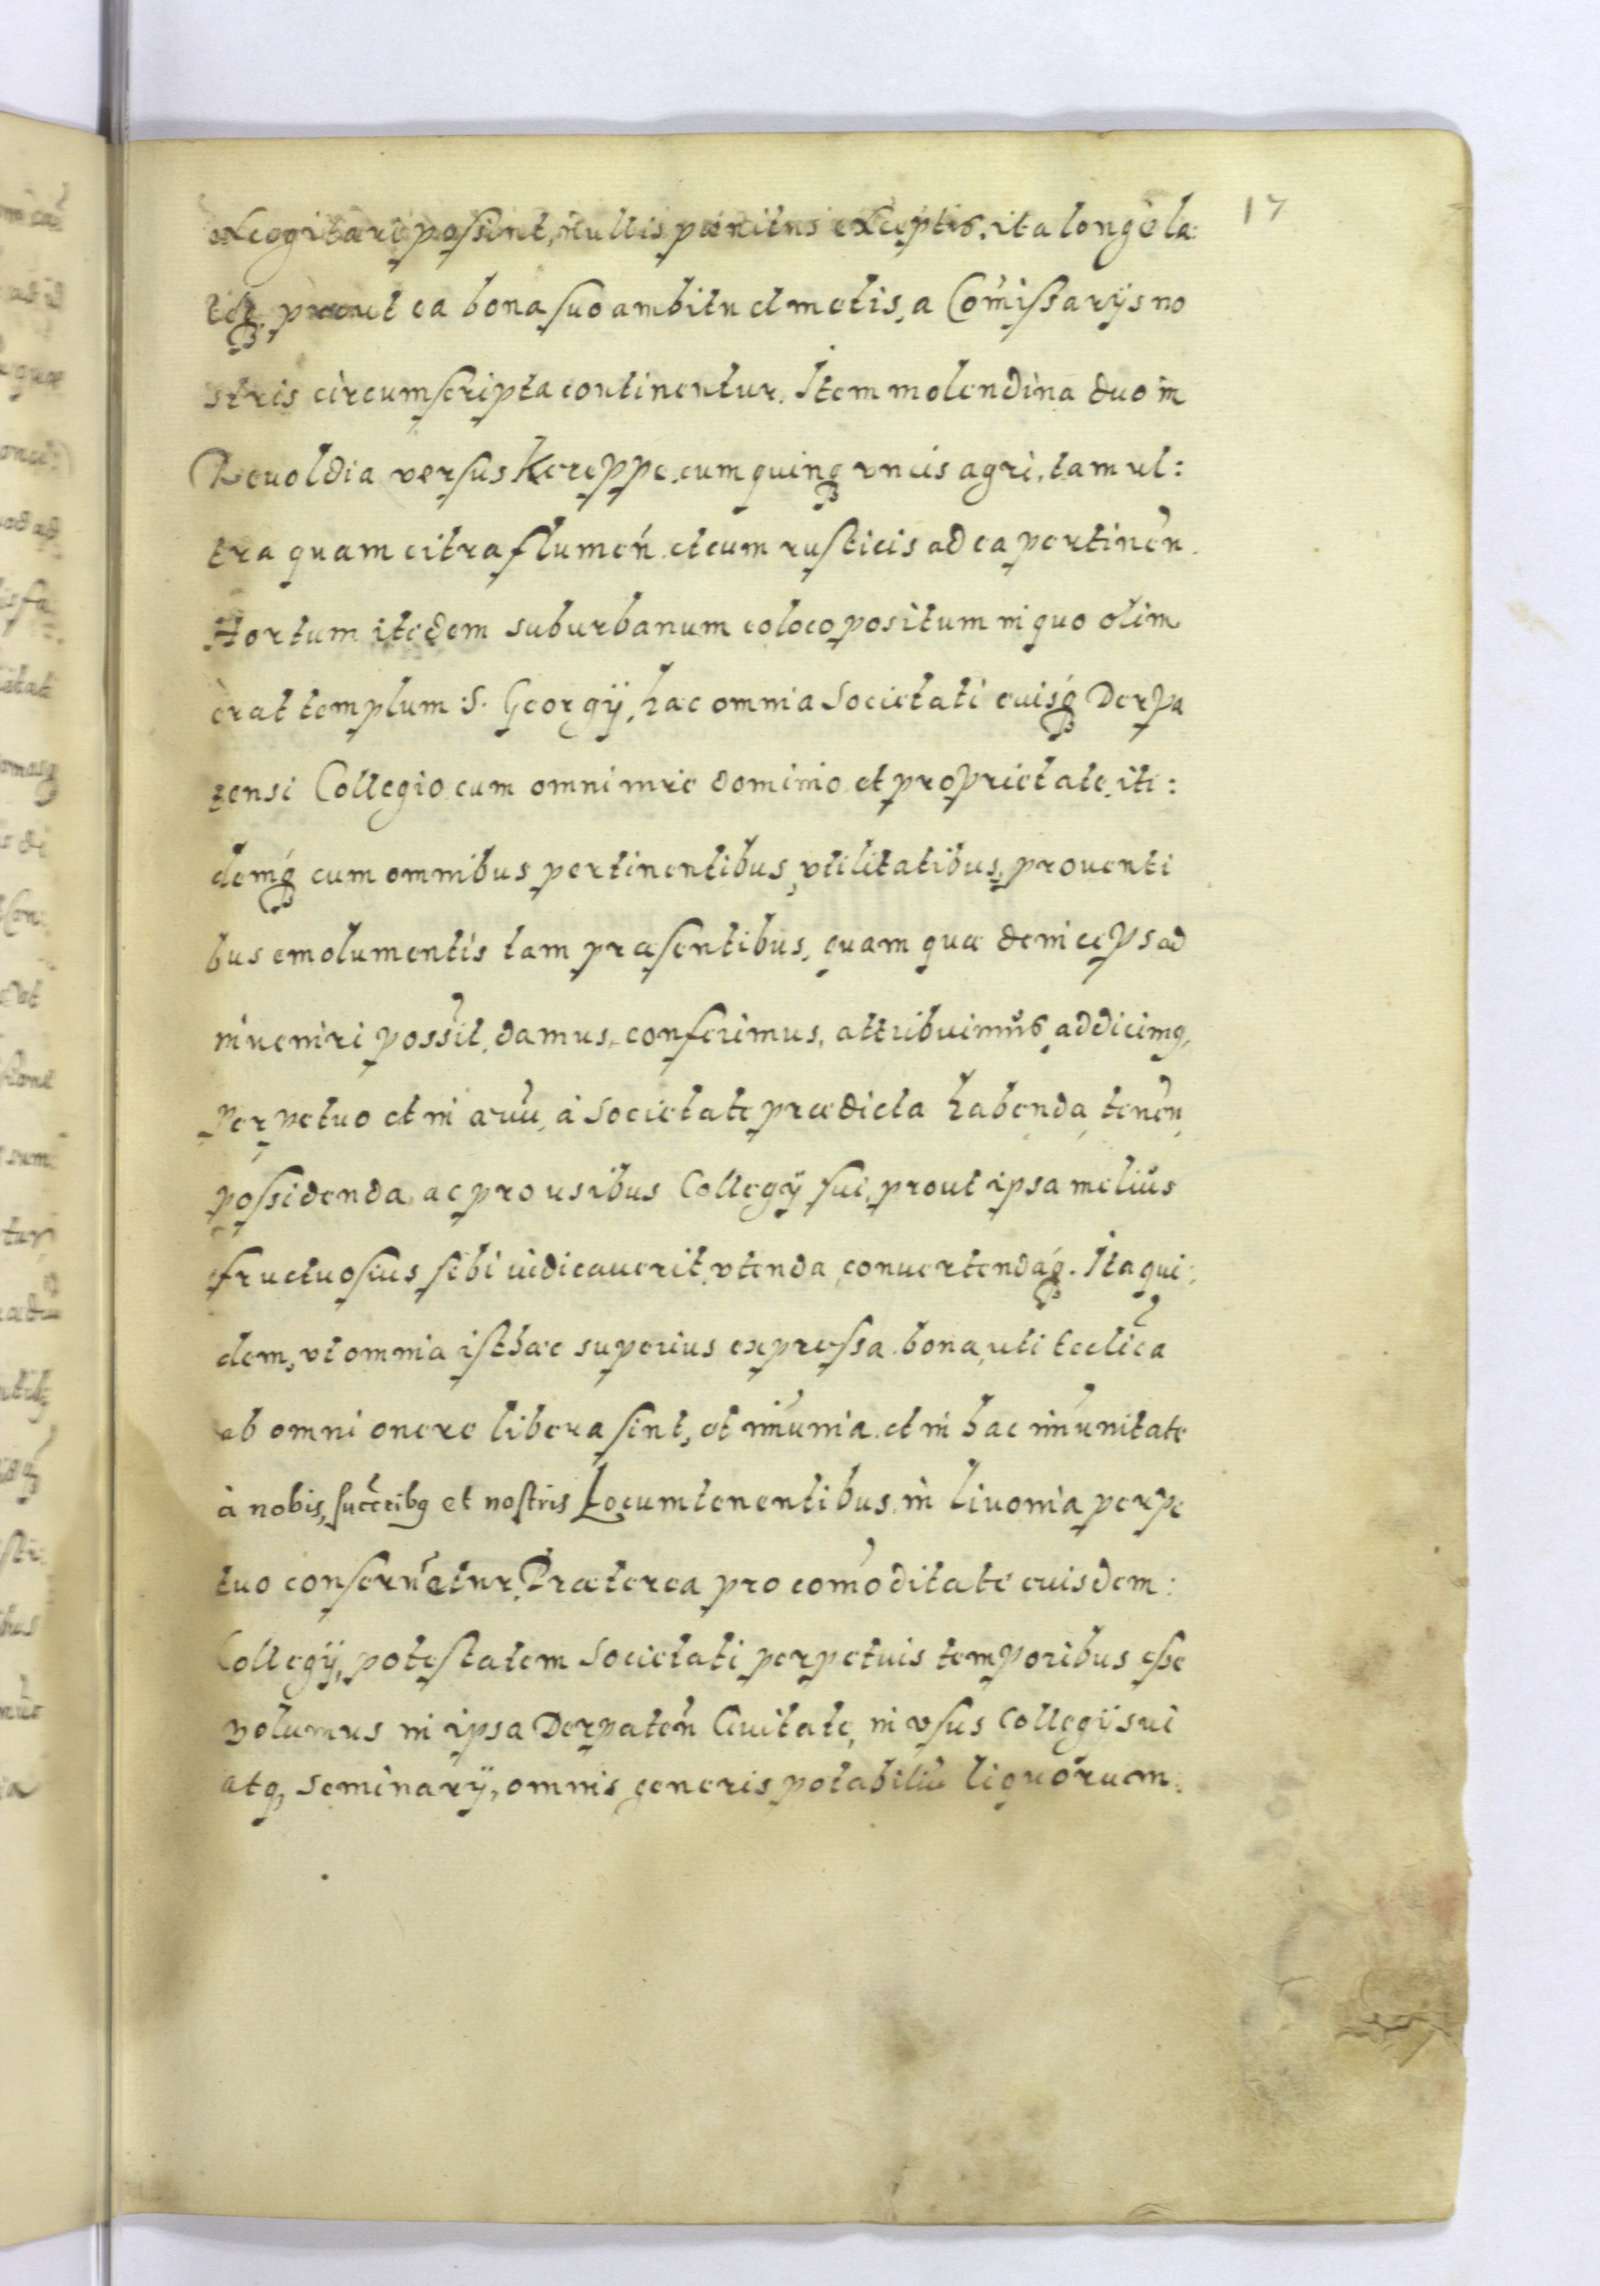 17
excogitari possint, nullis penitus exceptis, ita longe la
teq, prout ea bona suo ambitu et metis, a Comissarijs no
stris circumscripta continentur. Item molendina duo in
Revoldia versus Kereppe, cum quinq vncis agri, tam ul:
tra quam citra flumen. et cum rusticis ad ea pertinen.
Hortum itedem suburbanum eo loco positum in quo olim
erat templum S. Georgij, hac omnia Societati euisq Derpa
tensi Collegio cum omni iure dominio et proprietate, iti:
demq cum omnibus pertinentibus, vtilitatibus, prouenti
bus emolumentis tam præsentibus, quam quæ deniceps ad
inueniri possit, damus, conferimus, attribuimus addicimq,
perpetuo et in æuu, à Societate prædicta habenda, tenen,
possidenda, ac pro usibus Collegij sui, prout ipsa melius
fructuosius sibi iudicauerit, vtenda, conuertendaq. Ita qui:
dem, vt omnia isthæc superius expressa bona, uti Ecclica
ab omni onere libera sint, et imunia. et in hac imunitate
à nobis, succribq et nostris Locumtenentibus in Liuonia perpe
tuo conseruetur. Præterea pro comoditate euisdem:
Collegij, potestatem Societati perpetuis temporibus esse
volumus in ipsa Derpaten Ciuitate, in vsus Collegij sui
atq, Seminarij, omnis generis potabiliu liquorum: